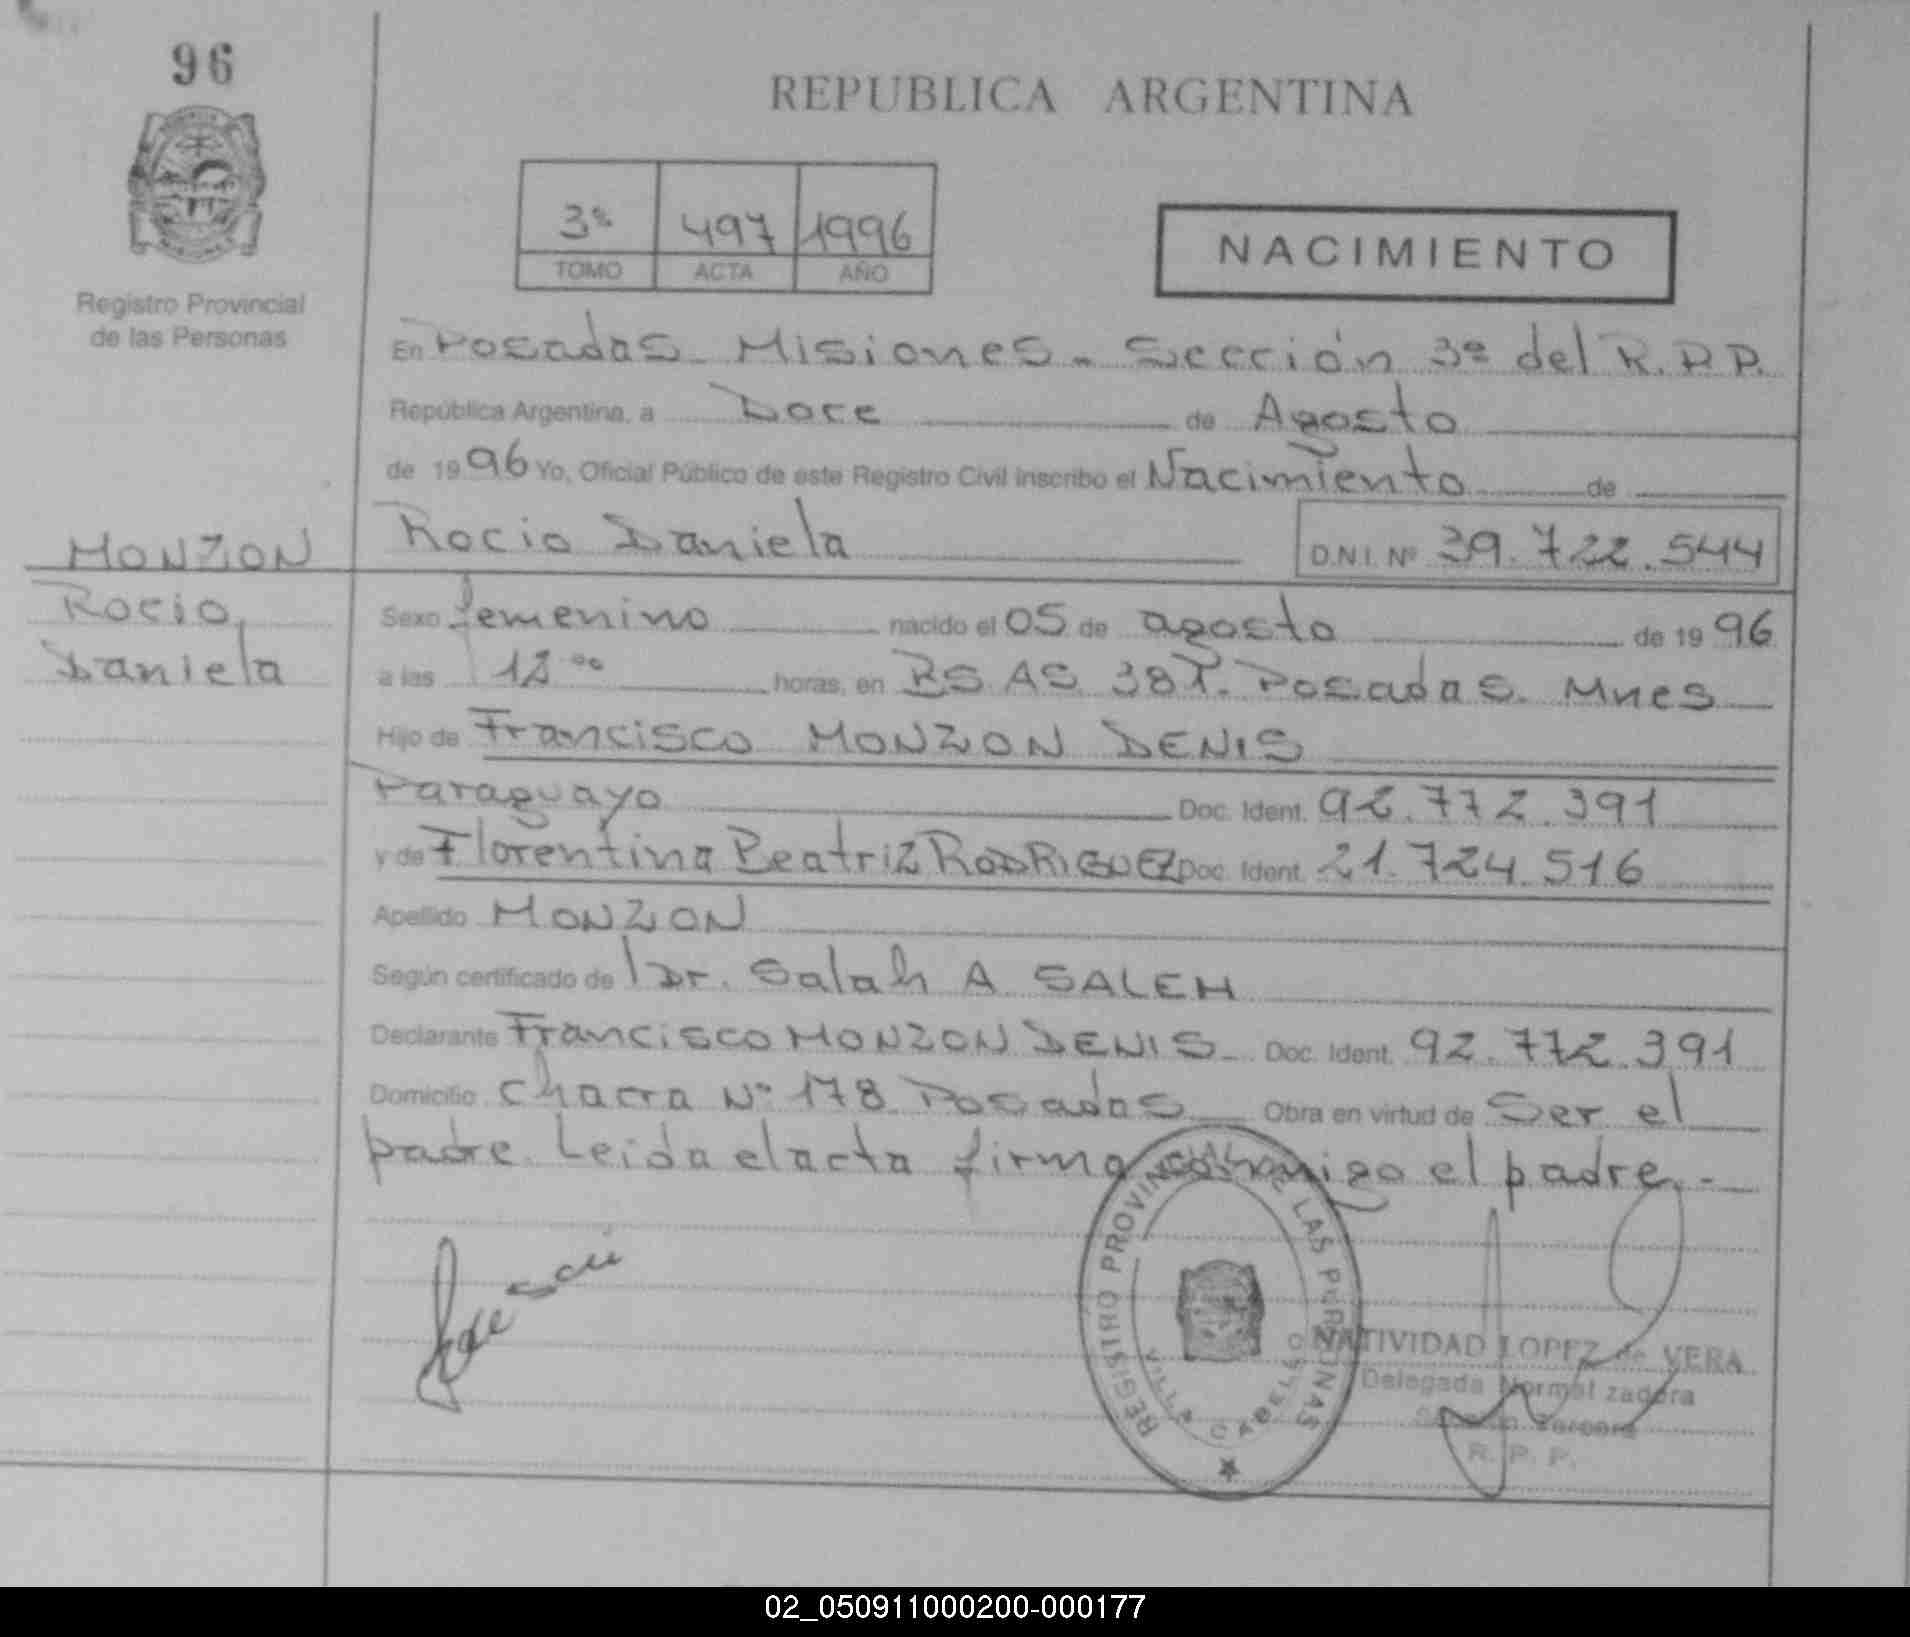 96
REPUBLICA ARGENTINA
3ª 497 1996
TOMO ACTA AÑO
NACIMIENTO
Registro Provincial
de las Personas
En Posadas Misiones - Sección 3ª del R.P.P.
República Argentina, a Doce de Agosto
de 1996 Yo, Oficial Público de este Registro Civil inscribo el Nacimiento de
Rocio Daniela D.N.I. Nº 39.722.544
MONZON
Rocio
Daniela
Sexo femenino nacido el 05 de agosto de 1996
a las 12 ºº horas, en BS AS 387. Posadas. Mnes
Hijo de Francisco MONZON DENIS
Paraguayo Doc. Ident. 92.772.391
y de Florentina Beatriz RODRIGUEZ Doc. Ident. 21.724.516
Apellido MONZON
Según certificado de Dr. Salah A SALEH
Declarante Francisco MONZON DENIS - Doc. Ident. 92.772.391
Domicilio Chacra Nº 178 Posadas Obra en virtud de Ser el
padre. Leida el acta firma conmigo el padre.-
REGISTRO PROVINCIAL DE LAS PERSONAS
VILLA CABELLO
NATIVIDAD LOPEZ de VERA
Delegada Normalizadora
Sección Tercera
R. P. P.
02_050911000200-000177